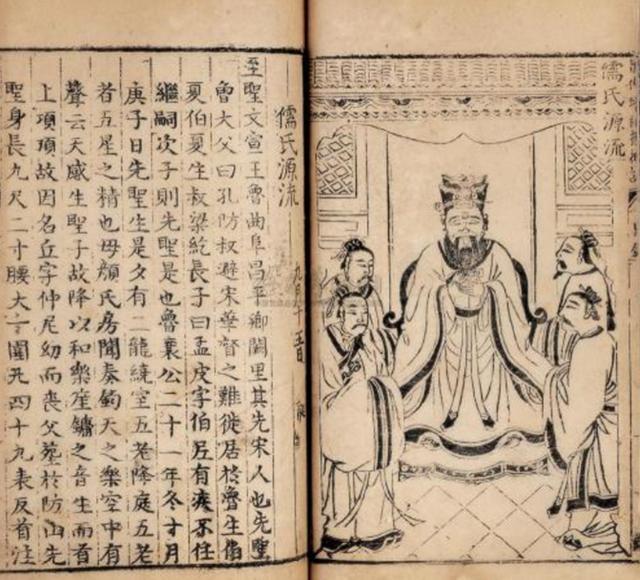 儒氏源流
儒氏源流
九月十五日
至聖文宣王魯曲阜昌平鄉闕里其先宋人也先聖
曾大父曰孔防叔避宋華督之難徙居於魯生伯
夏伯夏生叔梁紇長子曰孟皮字伯有疾不任
繼嗣次子則先聖是也魯襄公二十一年冬十月
庚子日先聖生是夕有二龍繞室五老降庭五老
者五星之精也母顏氏房聞奏鈞天之樂空中有
聲云天感生聖子故降以和樂笙鏞之音生而首
上項頂故因名丘字仲尼幼而喪父葬於防山先
聖身長九尺二寸腰大十圍凡四十九表反首洼